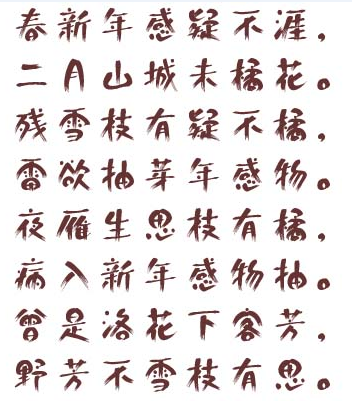 春新年感疑不涯，
二月山城未橘花。
残雪枝有疑不橘，
雷欲抽芽年感物。
夜雁生思枝有橘，
病入新年感物抽。
曾是洛花下客芳，
野芳不雪枝有思。